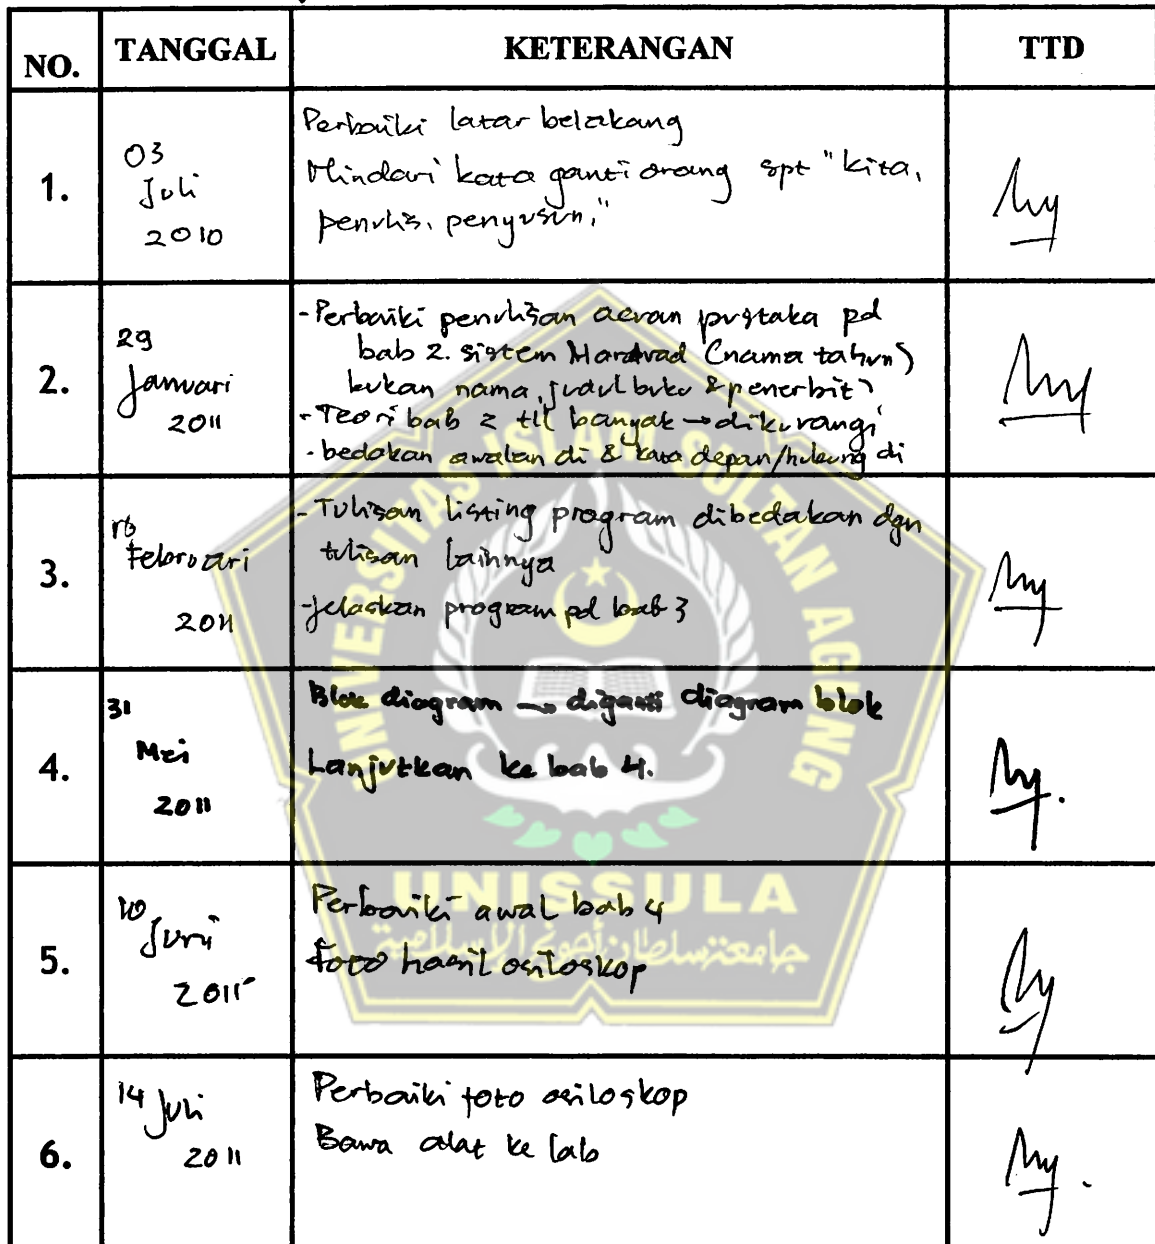 NO. TANGGAL KETERANGAN TTD
1.
03
Juli
2010
Perbaiki latar belakang
Hindari kata ganti orang spt "kita,
penulis, penyusun,"
2.
29
Januari
2011
- Perbaiki penulisan acuan pustaka pd
bab 2. sistem Hardvad (nama tahun)
bukan nama, judul buku & penerbit)
- Teori bab 2 tll banyak → dikurangi
- bedakan awalan di & kata depan/hubung di
3.
16
Februari
2011
- Tulisan listing program dibedakan dgn
tulisan lainnya
- jelaskan program pd bab 3
4.
31
Mei
2011
Blok diagram → diganti diagram blok
Lanjutkan ke bab 4.
5.
10
Juni
2011
Perbaiki awal bab 4
Foto hasil osiloskop
6.
14 Juli
2011
Perbaiki foto osiloskop
Bawa alat ke lab
UNIVERSITAS ISLAM SULTAN AGUNG
UNISSULA
جامعة سلطان أجونج الإسلامية